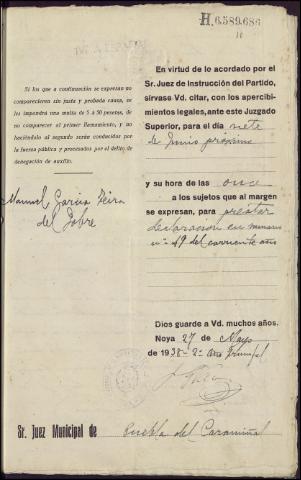 H.6.589.686
Si los que a continuación se expresan no
comparecieren sin justa y probada causa, se
les impondrá una multa de 5 a 50 pesetas, de
no comparecer al primer llamamiento, y no
haciéndolo al segundo serán conducidos por
la fuerza pública y procesados por el delito de
denegación de auxilio.
Manuel García
del Pobre
En virtud de lo acordado por el
Sr. Juez de Instrucción del Partido,
sírvase Vd. citar, con los apercibi-
mientos legales, ante este Juzgado
Superior, para el día siete
de Junio próximo
y su hora de las once
a los sujetos que al margen
se expresan, para prestar
declaración en sumario
nº 49 del corriente año
Dios guarde a Vd. muchos años.
Noya 27 de Mayo
de 1938- 2º Año Triunfal
Sr. Juez Municipal de Puebla del Caramiñal